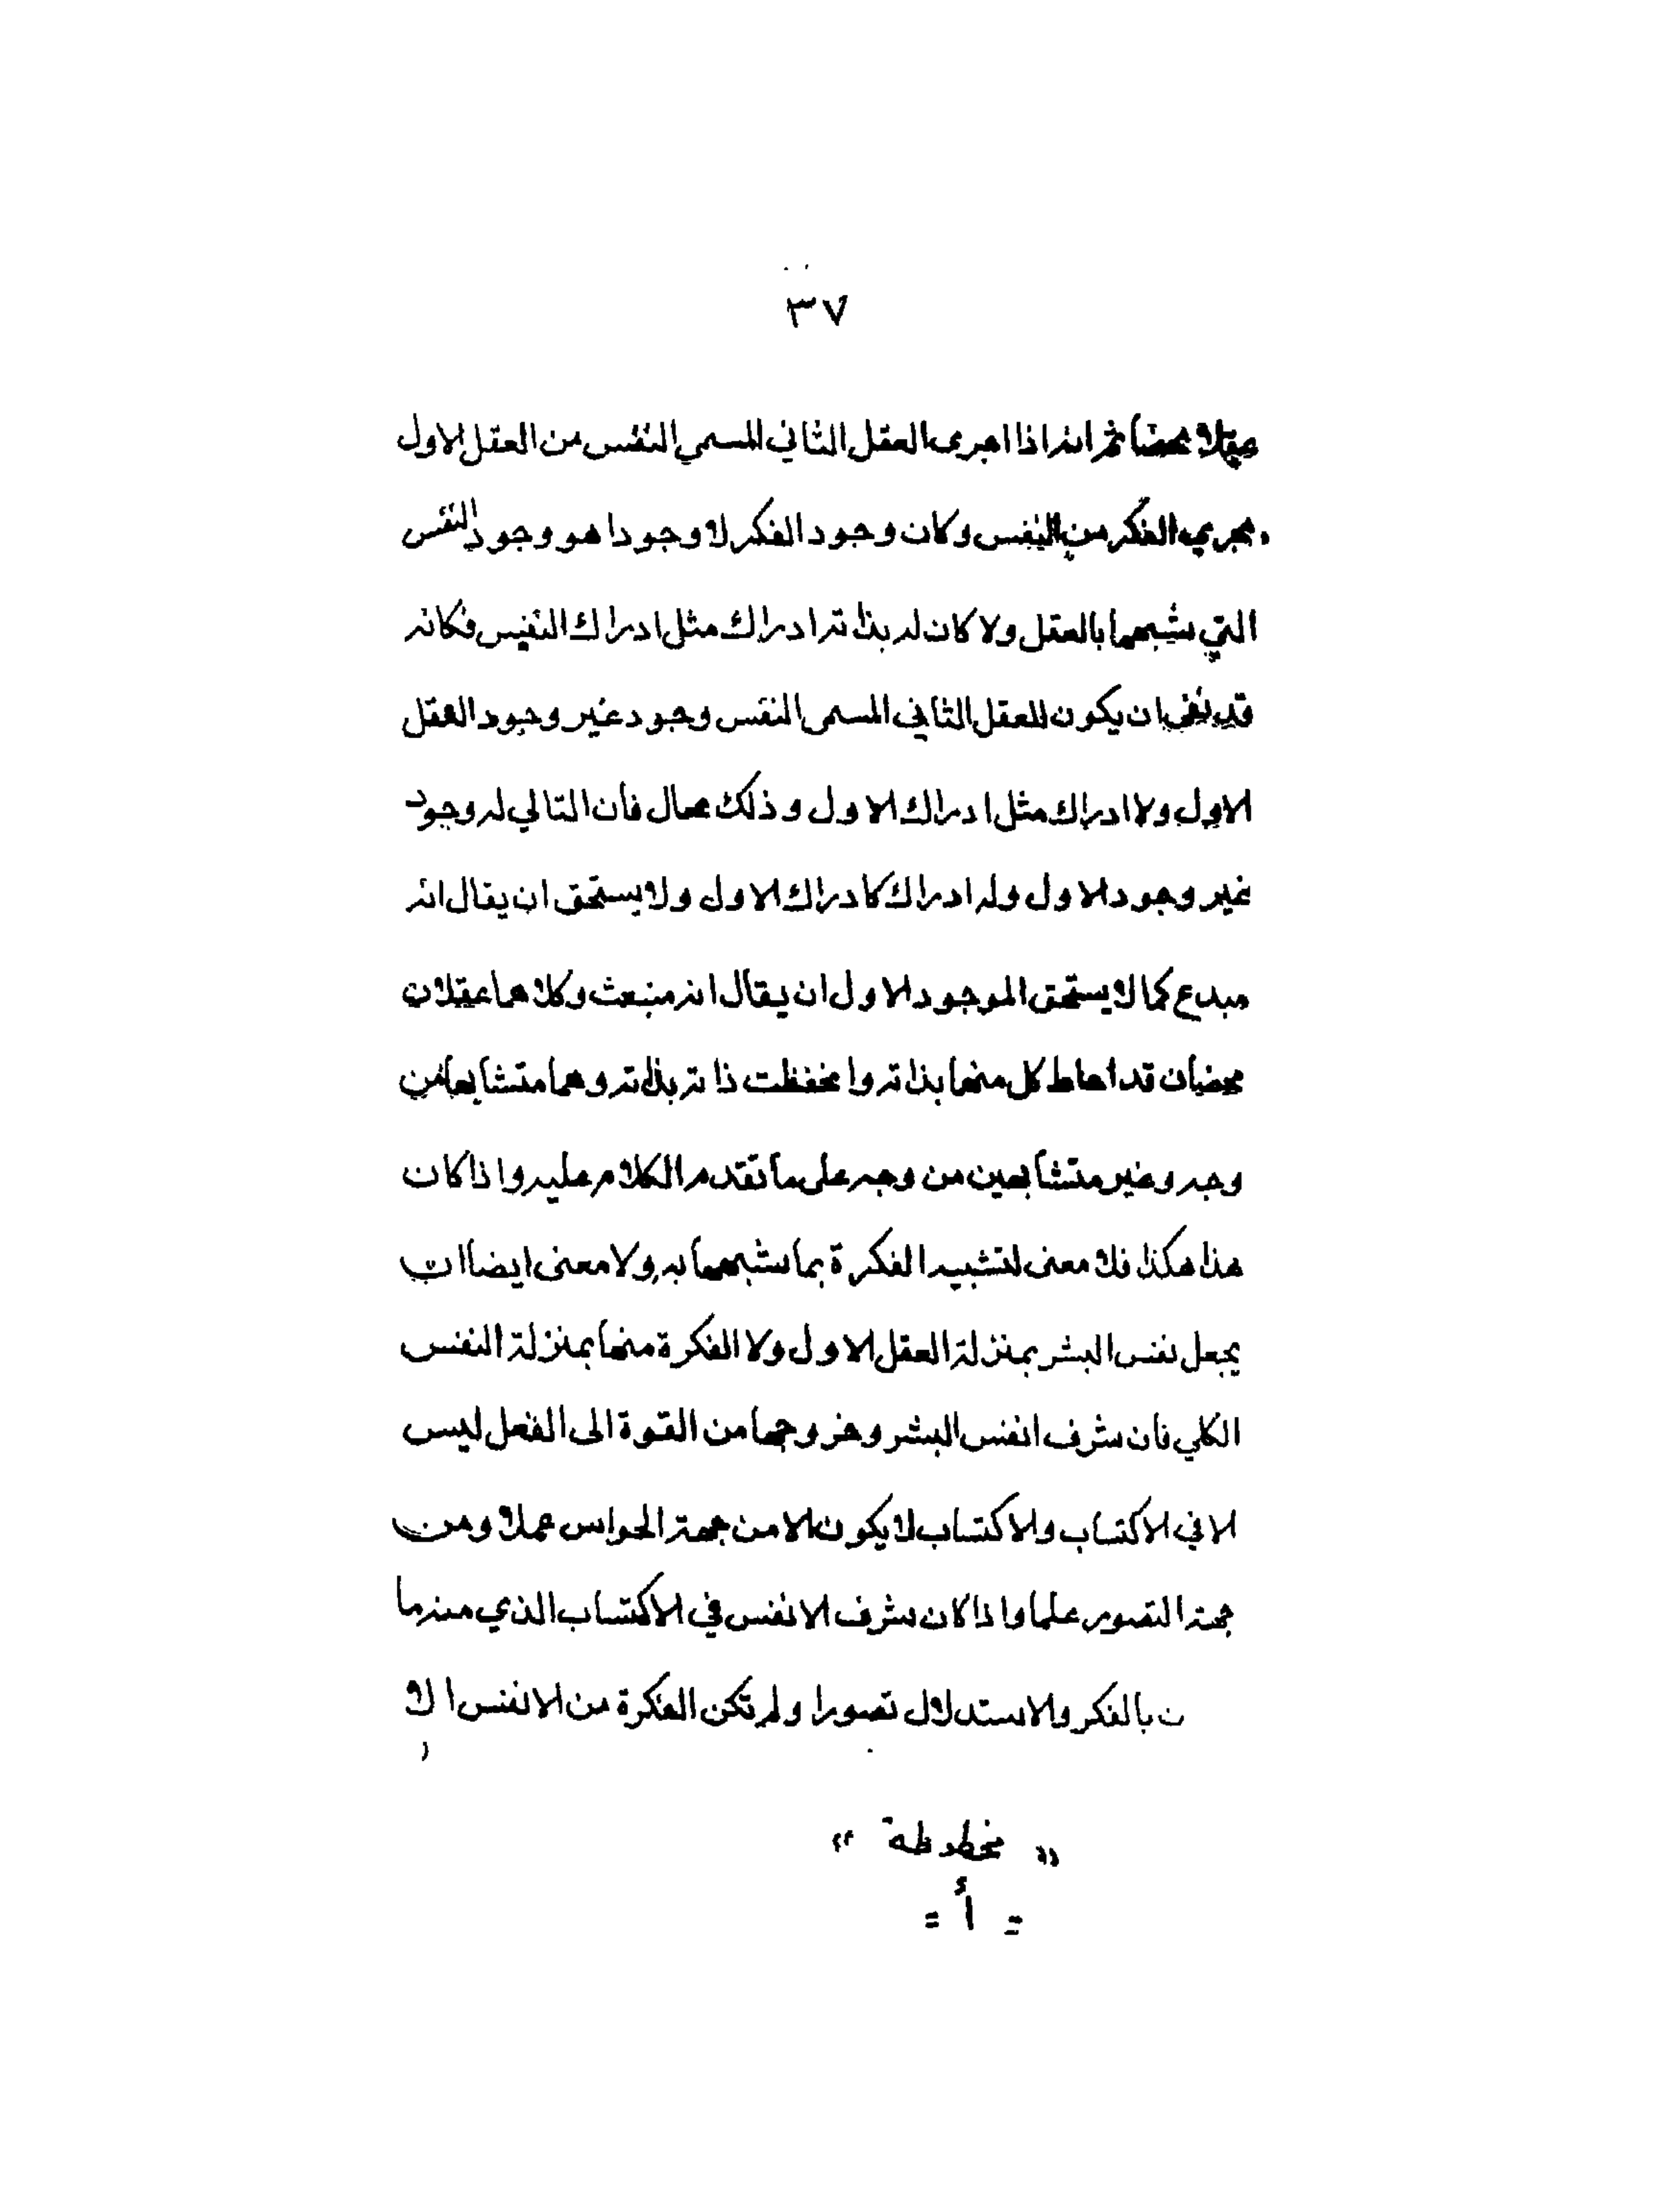 ٣٧
عقلا محضا ثم انه اذا اجرى العقل الثاني المسمي النفس من العقل الاول
مجرى الفكر من النفس وكان وجود الفكر لا وجودا هو وجود النفس
التي شبهها بالعقل ولا كان له بذاته ادراك مثل ادراك النفس فكانه
قد نفى ان يكون للعقل الثاني المسمى النفس وجود غير وجود العقل
الاول ولا ادراك مثل ادراك الاول وذلك محال فأن التالي له وجود
غير وجود الاول وله ادراك كادراك الاول ولا يستحق ان يقال انه
مبدع كما لا يستحق الموجود الاول ان يقال انه منبعث وكلاهما عقلان
محضان قد احاط كل منهما بذاته وانحفظت ذاته بذاته وهما متشابهان من
وجه وغير متشابهين من وجه على ما تقدم الكلام عليه واذا كان
هذا هكذا فلا معنى لتشبيه الفكرة بما شبهها به ولا معنى ايضا ان
يجعل نفس البشر بمنزلة العقل الاول ولا الفكرة منها بمنزلة النفس
الكلي فان شرف انفس البشر وخروجها من القوة الى الفعل ليس
الا في الاكتساب والاكتساب لا يكون الا من جهة الحواس عملا ومن
جهة التصور علما واذا كان شرف الانفس في الاكتساب الذي منه ما
ن بالفكر والاستدلال تصورا ولم تكن الفكرة من الانفس الا
« مخطوطة »
= أ =